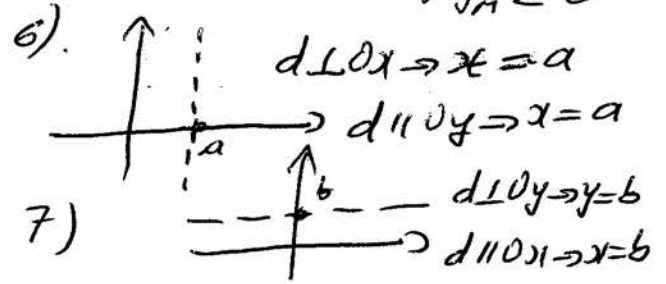 6).
d⊥Ox→x=a
d∥Oy→x=a
a
7)
b
d⊥Oy→y=b
d∥Ox→x=b